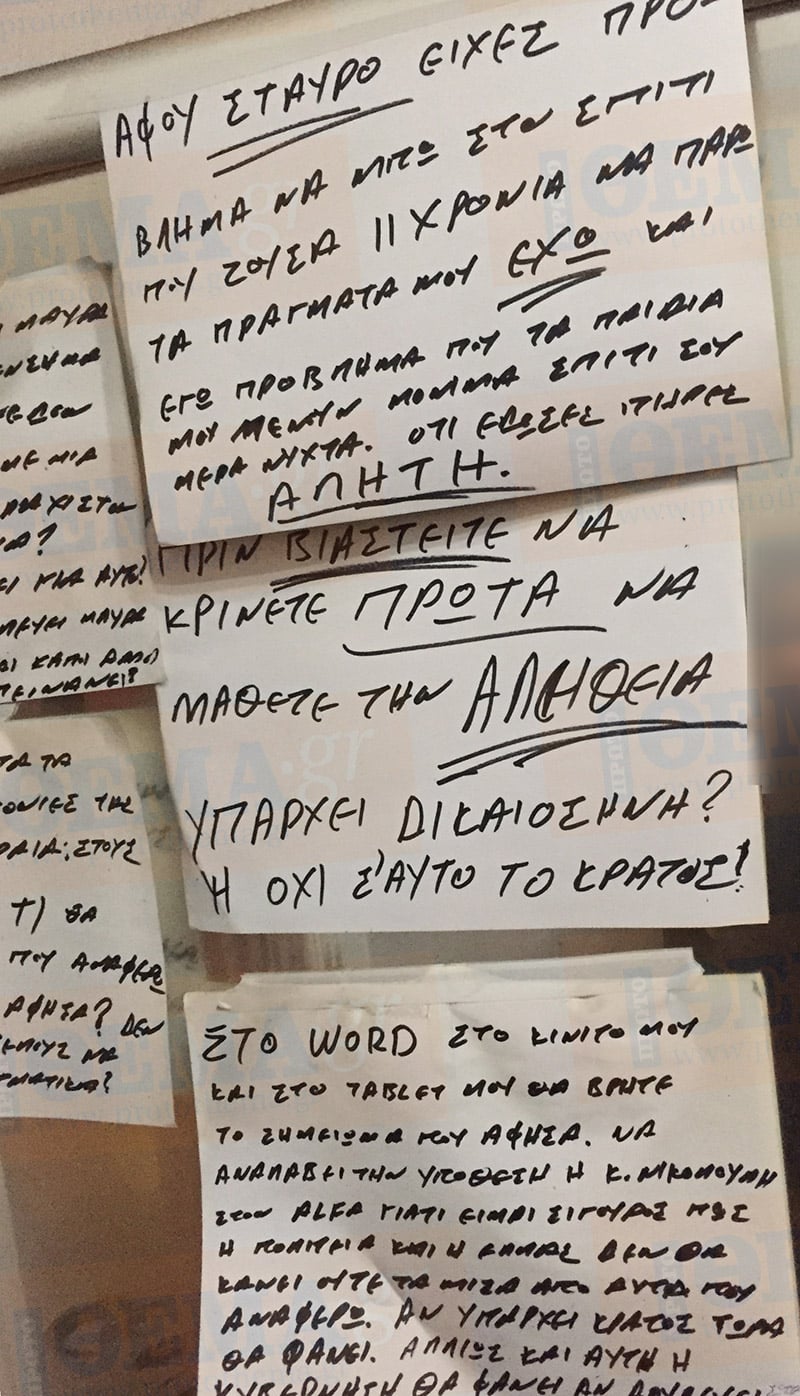 ΑΦΟΥ ΣΤΑΥΡΟ ΕΙΧΕΣ ΠΡΟ-
ΒΛΗΜΑ ΝΑ ΜΠΩ ΣΤΟ ΣΠΙΤΙ
ΠΟΥ ΖΟΥΣΑ 11 ΧΡΟΝΙΑ ΝΑ ΠΑΡΩ
ΤΑ ΠΡΑΓΜΑΤΑ ΜΟΥ ΕΧΩ ΚΑΙ
ΕΓΩ ΠΡΟΒΛΗΜΑ ΠΟΥ ΤΑ ΠΑΙΔΙΑ
ΜΟΥ ΜΕΝΟΥΝ ΜΟΝΙΜΑ ΣΠΙΤΙ ΣΟΥ
ΜΕΡΑ ΝΥΧΤΑ. ΟΤΙ ΕΔΩΣΕΣ ΠΗΡΕΣ
ΑΛΗΤΗ.
ΠΡΙΝ ΒΙΑΣΤΕΙΤΕ ΝΑ
ΚΡΙΝΕΤΕ ΠΡΩΤΑ ΝΑ
ΜΑΘΕΤΕ ΤΗΝ ΑΛΗΘΕΙΑ
ΥΠΑΡΧΕΙ ΔΙΚΑΙΟΣΗΝΗ?
Ή ΟΧΙ Σ'ΑΥΤΟ ΤΟ ΚΡΑΤΟΣ!
ΣΤΟ WORD ΣΤΟ ΚΙΝΙΤΟ ΜΟΥ
ΚΑΙ ΣΤΟ TABLET ΜΟΥ ΘΑ ΒΡΗΤΕ
ΤΟ ΣΗΜΕΙΩΜΑ ΠΟΥ ΑΦΗΣΑ. ΝΑ
ΑΝΑΛΑΒΕΙ ΤΗΝ ΥΠΟΘΕΣΗ Η Κ. ΝΙΚΟΛΟΥΛΗ
ΣΤΟΝ ALFA ΓΙΑΤΙ ΕΙΜΑΙ ΣΙΓΟΥΡΟΣ ΠΩΣ
Η ΠΟΛΙΤΕΙΑ ΚΑΙ Η ΕΛΛΑΣ ΔΕΝ ΘΑ
ΚΑΝΕΙ ΟΥΤΕ ΤΑ ΜΙΣΑ ΑΠΟ ΑΥΤΑ ΠΟΥ
ΑΝΑΦΕΡΩ. ΑΝ ΥΠΑΡΧΕΙ ΚΡΑΤΟΣ ΤΩΡΑ
ΘΑ ΦΑΝΕΙ. ΑΛΛΙΩΣ ΚΑΙ ΑΥΤΗ Η
ΚΥΒΕΡΝΗΣΗ ΘΑ ΦΑΝΕΙ ΑΝ
ΜΑΥΡΑ
ΜΕ ΜΙΑ
ΓΙΑ ΑΥΤΟ!
ΜΑΥΡΑ
ΚΑΤΙ ΑΠΟ
ΤΑ ΤΑ
ΤΗΣ
ΣΤΟΥΣ
ΤΙ ΘΑ
ΠΟΥ ΑΝΑΦΕΡΩ
ΑΦΗΣΑ? ΔΕΝ
ΝΑ